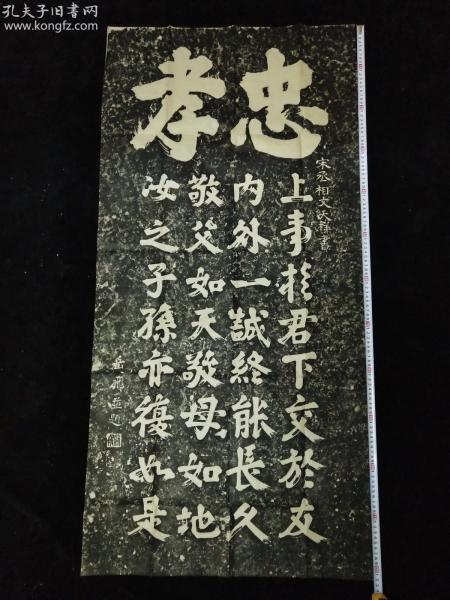 孔夫子旧书网
www.kongfz.com
忠孝
宋丞相文天祥書
上事於君下交於友
内外一誠終能長久
敬父如天敬母如地
汝之子孫亦復如是
岳飛